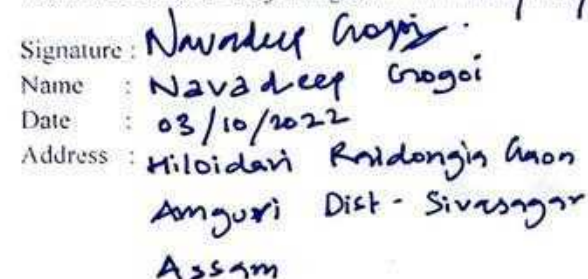 Signature : Navadeep Gogoi.
Name : Navadeep Gogoi
Date : 03/10/2022
Address : Hiloidari Raidongia Gaon
Amguri Dist - Sivasagar
Assam